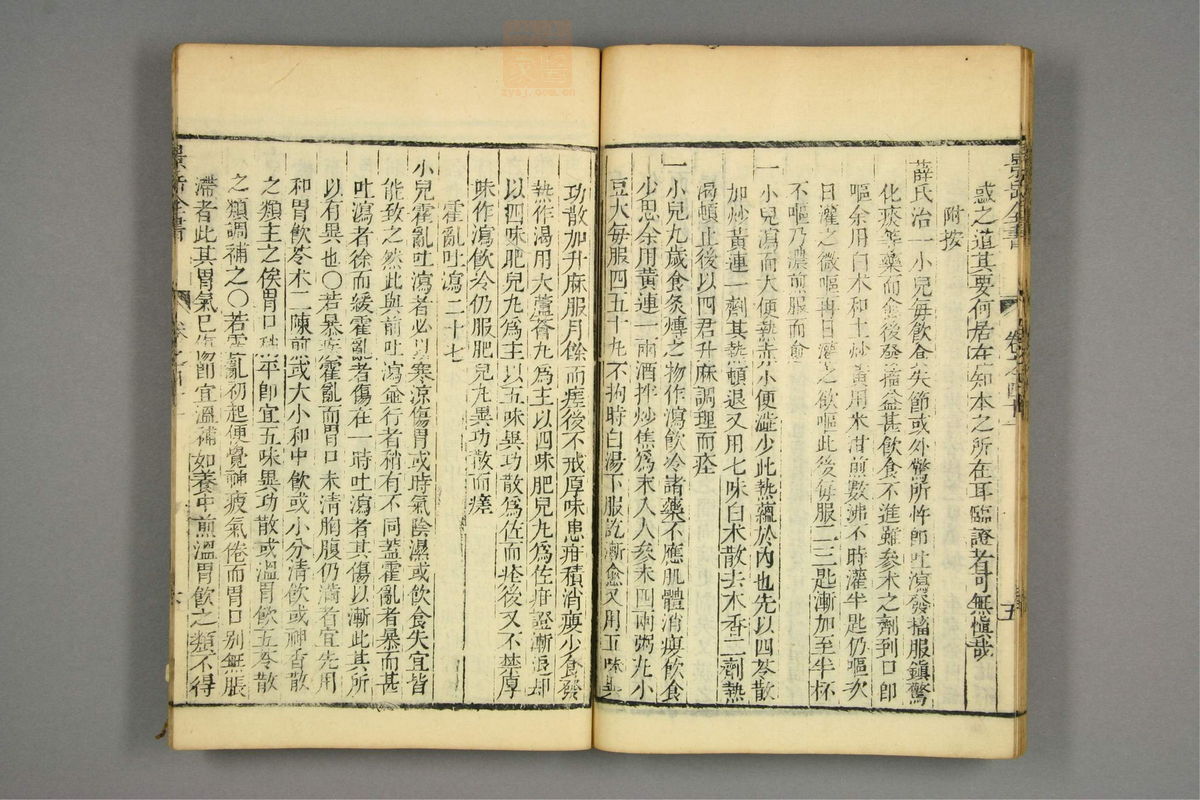 惑之道其要何居在知本之所在耳臨證者可無慎哉
附按
薛氏治一小兒每飲食失節或外驚所忤即吐瀉發搐服鎮驚
化痰等藥而愈後發搐益甚飲食不進雖參朮之劑到口即
嘔余用白朮和土炒黃用米泔煎數沸不時灌半匙仍嘔次
日灌之微嘔再日灌之欲嘔此後每服二三匙漸加至半杯
不嘔乃濃煎服而愈
一小兒瀉而大便熱赤小便澁少此熱蘊於內也先以四苓散
加炒黃連一劑其熱頓退又用七味白朮散去木香二劑熱
渴頓止後以四君升麻調理而痊
一小兒九歲食炙煿之物作瀉飲冷諸藥不應肌體消瘦飲食
少思余用黃連一兩酒拌炒焦為末入人參末四兩粥丸小
豆大每服四五十丸不拘時白湯下服訖漸愈又用五味異
功散加升麻服月餘而瘥後不戒厚味患疳積消瘦少食發
熱作渴用大蘆薈丸為主以四味肥兒丸為佐疳證漸退却
以四味肥兒丸為主以五味異功散為佐而痊後又不禁厚
味作瀉飲冷仍服肥兒丸異功散而瘥
霍亂吐瀉二十七
小兒霍亂吐瀉者必以寒涼傷胃或時氣陰濕或飲食失宜皆
能致之然此與前吐瀉並行者稍有不同蓋霍亂者暴而甚
吐瀉者徐而緩霍亂者傷在一時吐瀉者其傷以漸此其所
以有異也〇若暴疾霍亂而胃口未清胸腹仍滿者宜先用
和胃飲苓朮二陳煎或大小和中飲或小分清飲或神香散
之類主之俟胃口稍平即宜五味異功散或溫胃飲五苓散
之類調補之〇若霍亂初起便覺神疲氣倦而胃口別無脹
滯者此其胃氣已傷即宜溫補如養中煎溫胃飲之類不得
景岳全書
卷之四十
五
景岳全書
卷之四十
六
zysj.com.cn